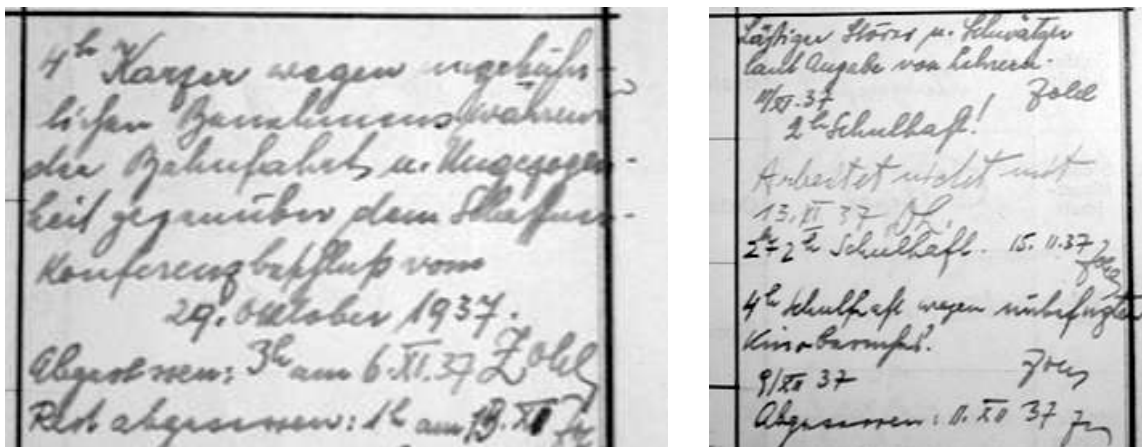 4 h Karzer wegen ungebühr-
lichen Benehmens während
der Bahnfahrt u. Ungezogen-
heit gegenüber dem Schaffner.-
Konferenzbeschluß vom
29. Oktober 1937.
Abgesessen: 3h am 6.XI.37 Zobl
Rest abgesessen: 1h am 13. XI
Lästiger Störer u. Schwätzer
laut Angabe von Lehrern.
11/XI.37 Zobl
2 h Schulhaft!
Arbeitet nicht mit
13.XI 37
2 h Schulhaft. 15.11.37 Zobl
4 h Schulhaft wegen unbefugten
Kinobesuches.
9/XII 37 Zobl
Abgesessen: 11. XII 37